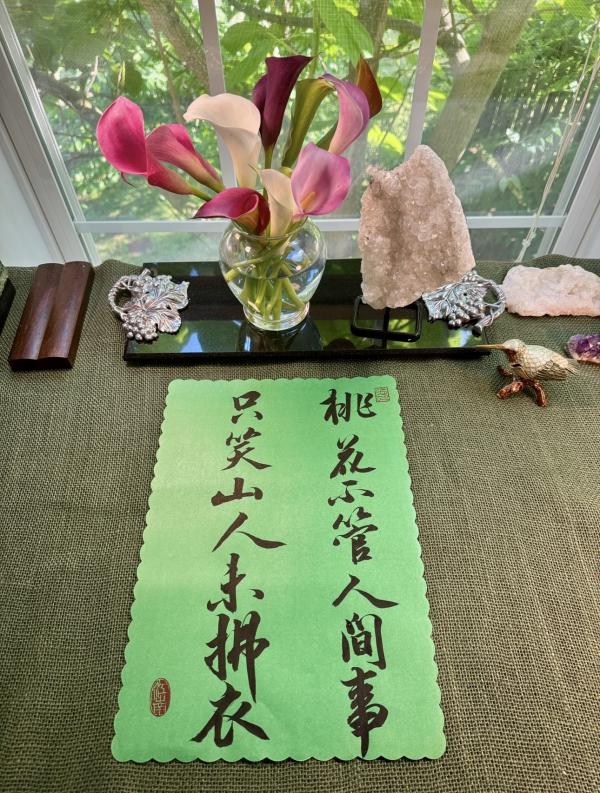 桃花不管人間事
只笑山人未拂衣